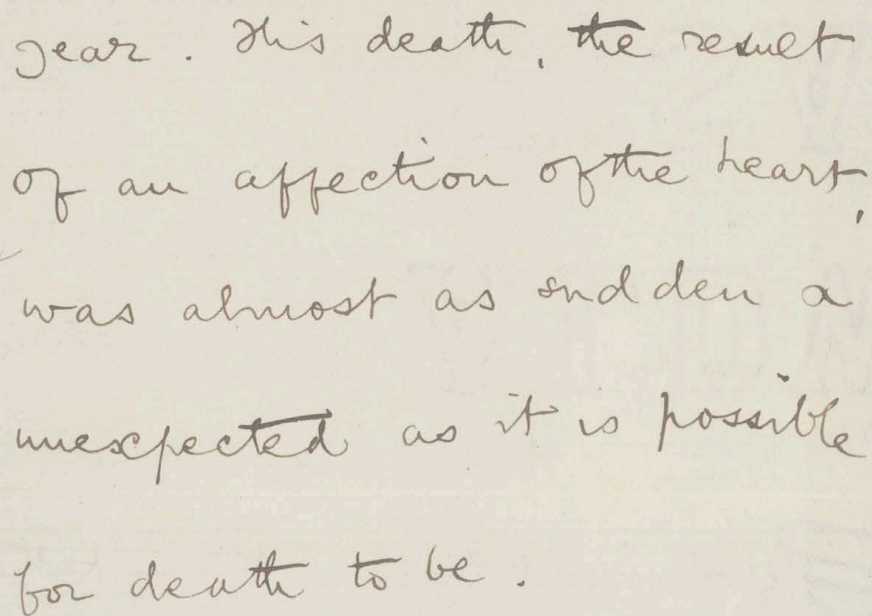 year. His death, the result
of an affection of the heart,
was almost as sudden &
unexpected as it is possible
for death to be.